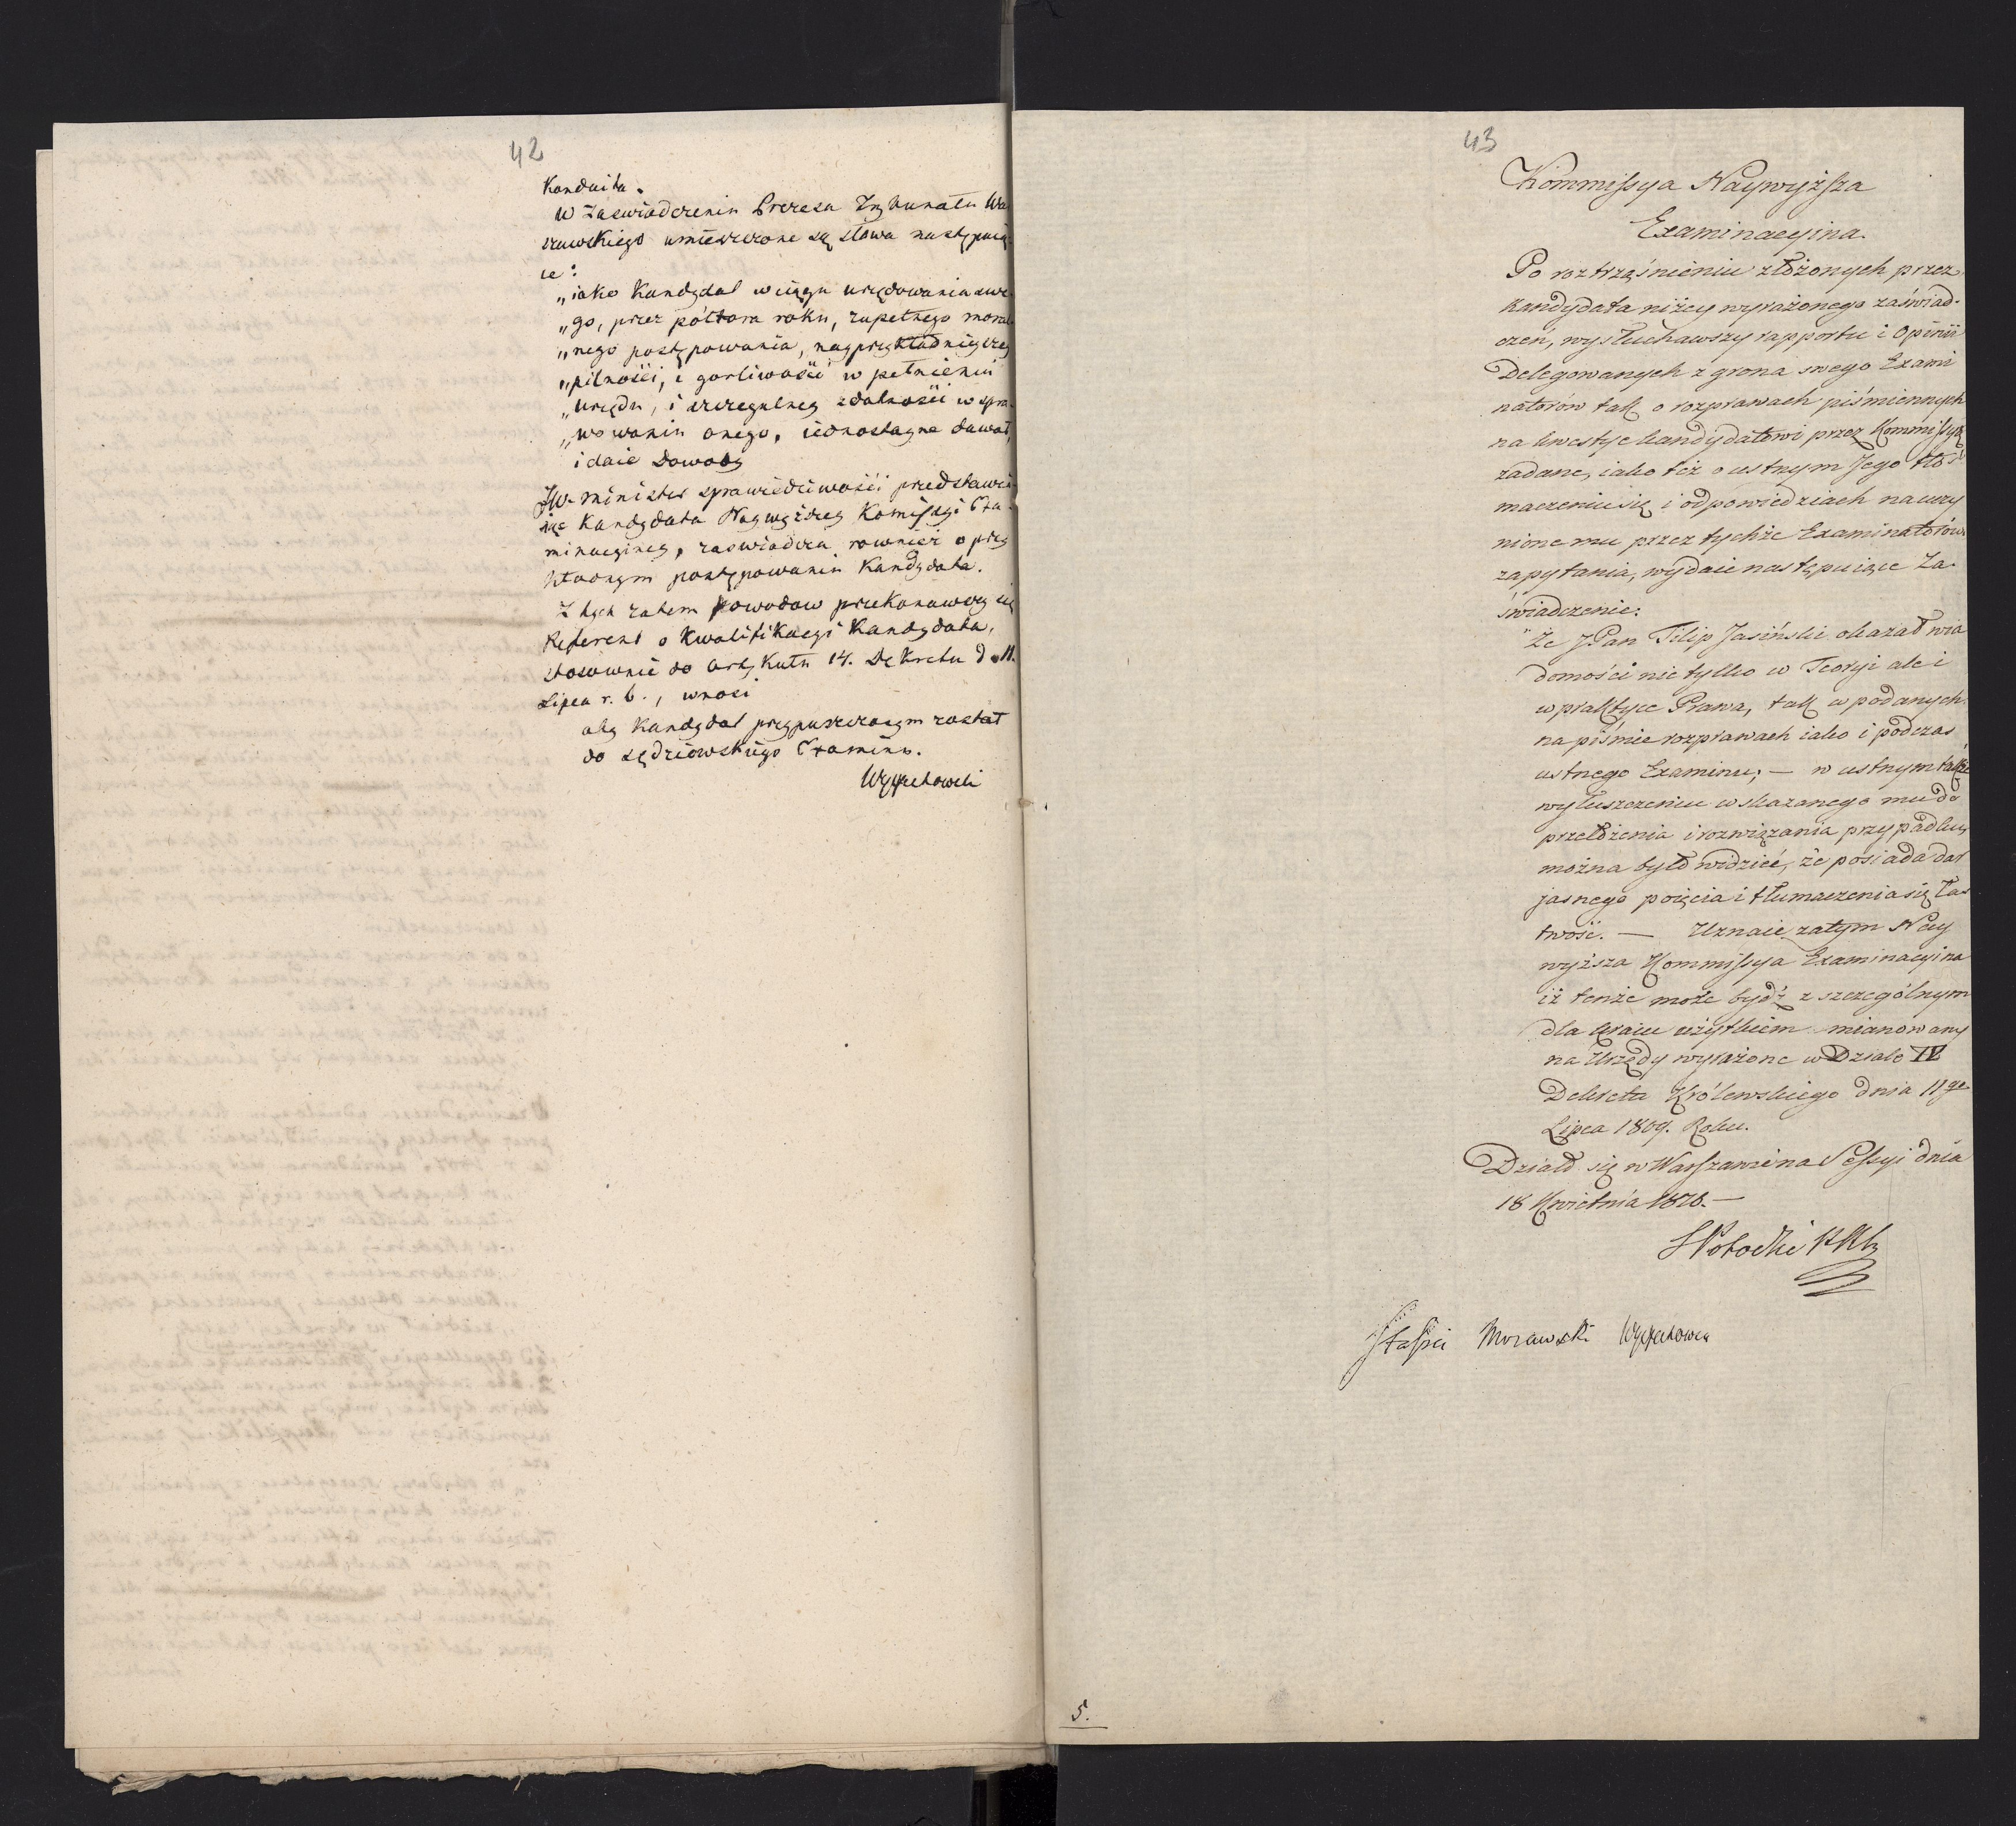 42
Konduita.
W zaswiadczeniu Prezesa Trybunału War
szawskiego umieszczone są słowa następuią
ce:
„iako Kandydat w ciągu urzędowania swe
„go, przez półtora roku, zupełnego moral
„nego postępowania, nayprzykładnieyszey
„pilności, i gorliwości w pełnieniu
„urzędu, i szczegulney zdatności w spra
„wowaniu onego, iednostayne dawał,
i daie dowody
JW. Minister sprawiedliwości przedstawia
iąc Kandydata Naywyższey Komissyi Exa
minacyiney, zaswiadcza rownież o przy
kładnym postępowaniu Kandydata.
Z tych zatem powodow przekonawszy się
Referent o Kwalifikacyi Kandydata,
stosownie do Artykułu 14. Dekretu d. 11.
Lipca r. b., wnosi
aby Kandydat przypuszczonym został
do sędziowskiego Examinu.
Wyczechowski
43
Kommissya Naywyższa
Examinacyina.
Po roztrząśnieniu złożonych przez
Kandydata niżey wyrażonego zaświad-
czeń, wysłuchawszy rapportu i Opinii
Delegowanych z grona swego Exami
natorów tak o rozprawach piśmiennych
na kwestye kandydatowi przez Kommissyą
zadane, iako też o ustnym Jego tło
maczeniu się i odpowiedziach na uczy
nione mu przez tychże Examinatorów
zapytania, wydaie następuiące Za-
świadczenie:
"Że JPan Filip Jasiński okazał wia
domości nie tylko w Teoryi ale i
w praktyce Prawa, tak w podanych
na piśmie rozprawach iako i podczas
ustnego Examinu; — w ustnym także
wyłuszczeniu wskazanego mu do
przełożenia i rozwiązania przypadku,
można było widzieć, że posiada dar
jasnego poięcia i tłumaczenia się ła
twość. — Uznaie zatym Nay
wyższa Kommissya Examinacyina
iż tenże może bydź z szczególnym
dla kraiu użytkiem mianowany
na Urzędy wyrażone w Dziale IV
Dekretu Królewskiego dnia 11go
Lipca 1809. Roku.
Działo się w Warszawie na Sessyi dnia
18 Kwietnia 1810. —
S Potocki
Staszic Morawski Wyczechowski
5.